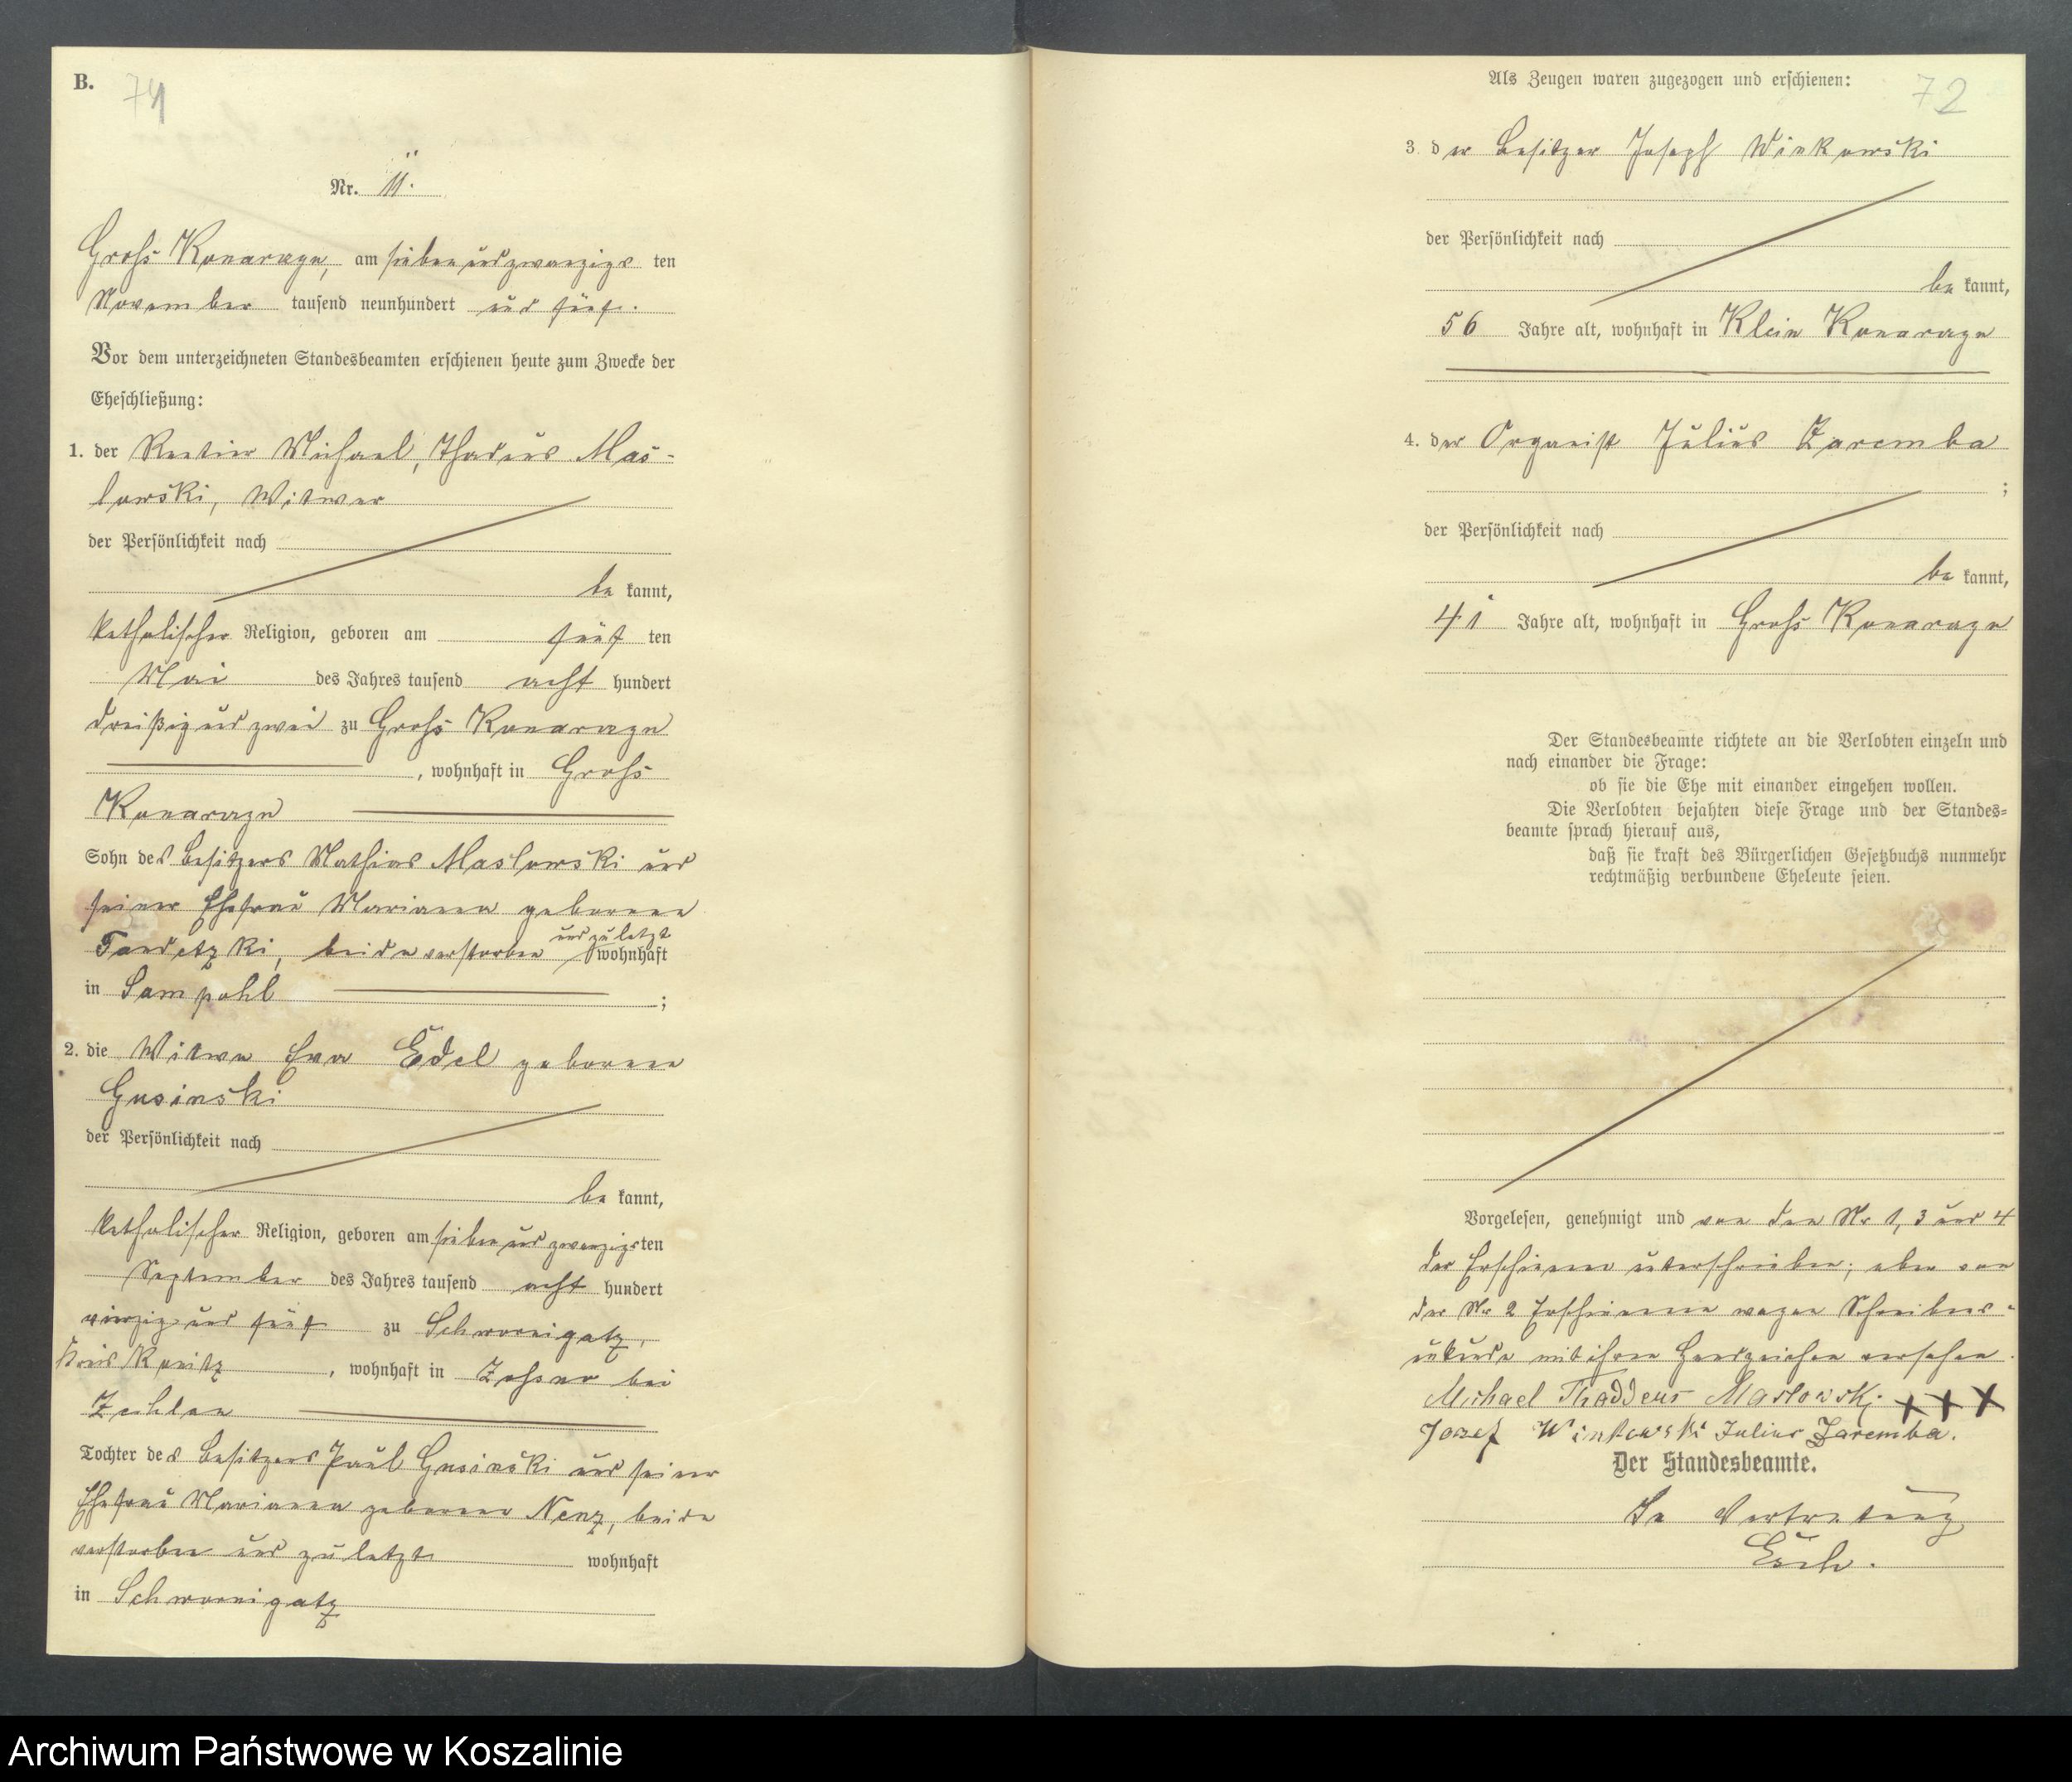 B.
74
Nr. 11.
Groß Konarczyn, am siebenundzwanzigs ten
November tausend neunhundert und fünf.
Vor dem unterzeichneten Standesbeamten erschienen heute zum Zwecke der
Eheschließung:
1. der Rentier Michael, Thadeus Mas-
lowski, Witwer
der Persönlichkeit nach
be kannt,
katholischer Religion, geboren am fünf ten
Mai des Jahres tausend acht hundert
dreißig und zwei zu Groß Konarczyn
, wohnhaft in Groß
Konarczyn
Sohn des Besitzers Mathias Maslowski und
seiner Ehefrau Marianna geborenen
Tandetzki, beide verstorben und zuletzt wohnhaft
in Sampohl ;
2. die Witwe Eva Edel geborene
Gusinski
der Persönlichkeit nach
be kannt,
katholischer Religion, geboren am siebenundzwanzigsten
September des Jahres tausend acht hundert
vierzig und fünf zu Schwornigatz,
Kreis Konitz, wohnhaft in bei
Zechlau
Tochter des Besitzers Paul Gusinski und seiner
Ehefrau Marianna geborener Nenz, beide
verstorben und zuletzt wohnhaft
in Schwornigatz
72
Als Zeugen waren zugezogen und erschienen:
3. der Besitzer Joseph Winkowski
der Persönlichkeit nach
be kannt,
56 Jahre alt, wohnhaft in Klein Konarczyn
4. der Organist Julius Zaremba
;
der Persönlichkeit nach
be kannt,
41 Jahre alt, wohnhaft in Groß Konarczyn
Der Standesbeamte richtete an die Verlobten einzeln und
nach einander die Frage:
ob sie die Ehe mit einander eingehen wollen.
Die Verlobten bejahten diese Frage und der Standes=
beamte sprach hierauf aus,
daß sie kraft des Bürgerlichen Gesetzbuchs nunmehr
rechtmäßig verbundene Eheleute seien.
Vorgelesen, genehmigt und von den Nr 1, 3 und 4
der Erschienen unterschrieben; aber von
der Nr 2 Erschienenen wegen Schreibens-
unkunde mit ihrem Handzeichen versehen.
Michael Thaddeus Masłowski. +++
Jozef Winkowski Julius Zaremba.
Der Standesbeamte.
In Vertretung
Esch.
Archiwum Państwowe w Koszalinie